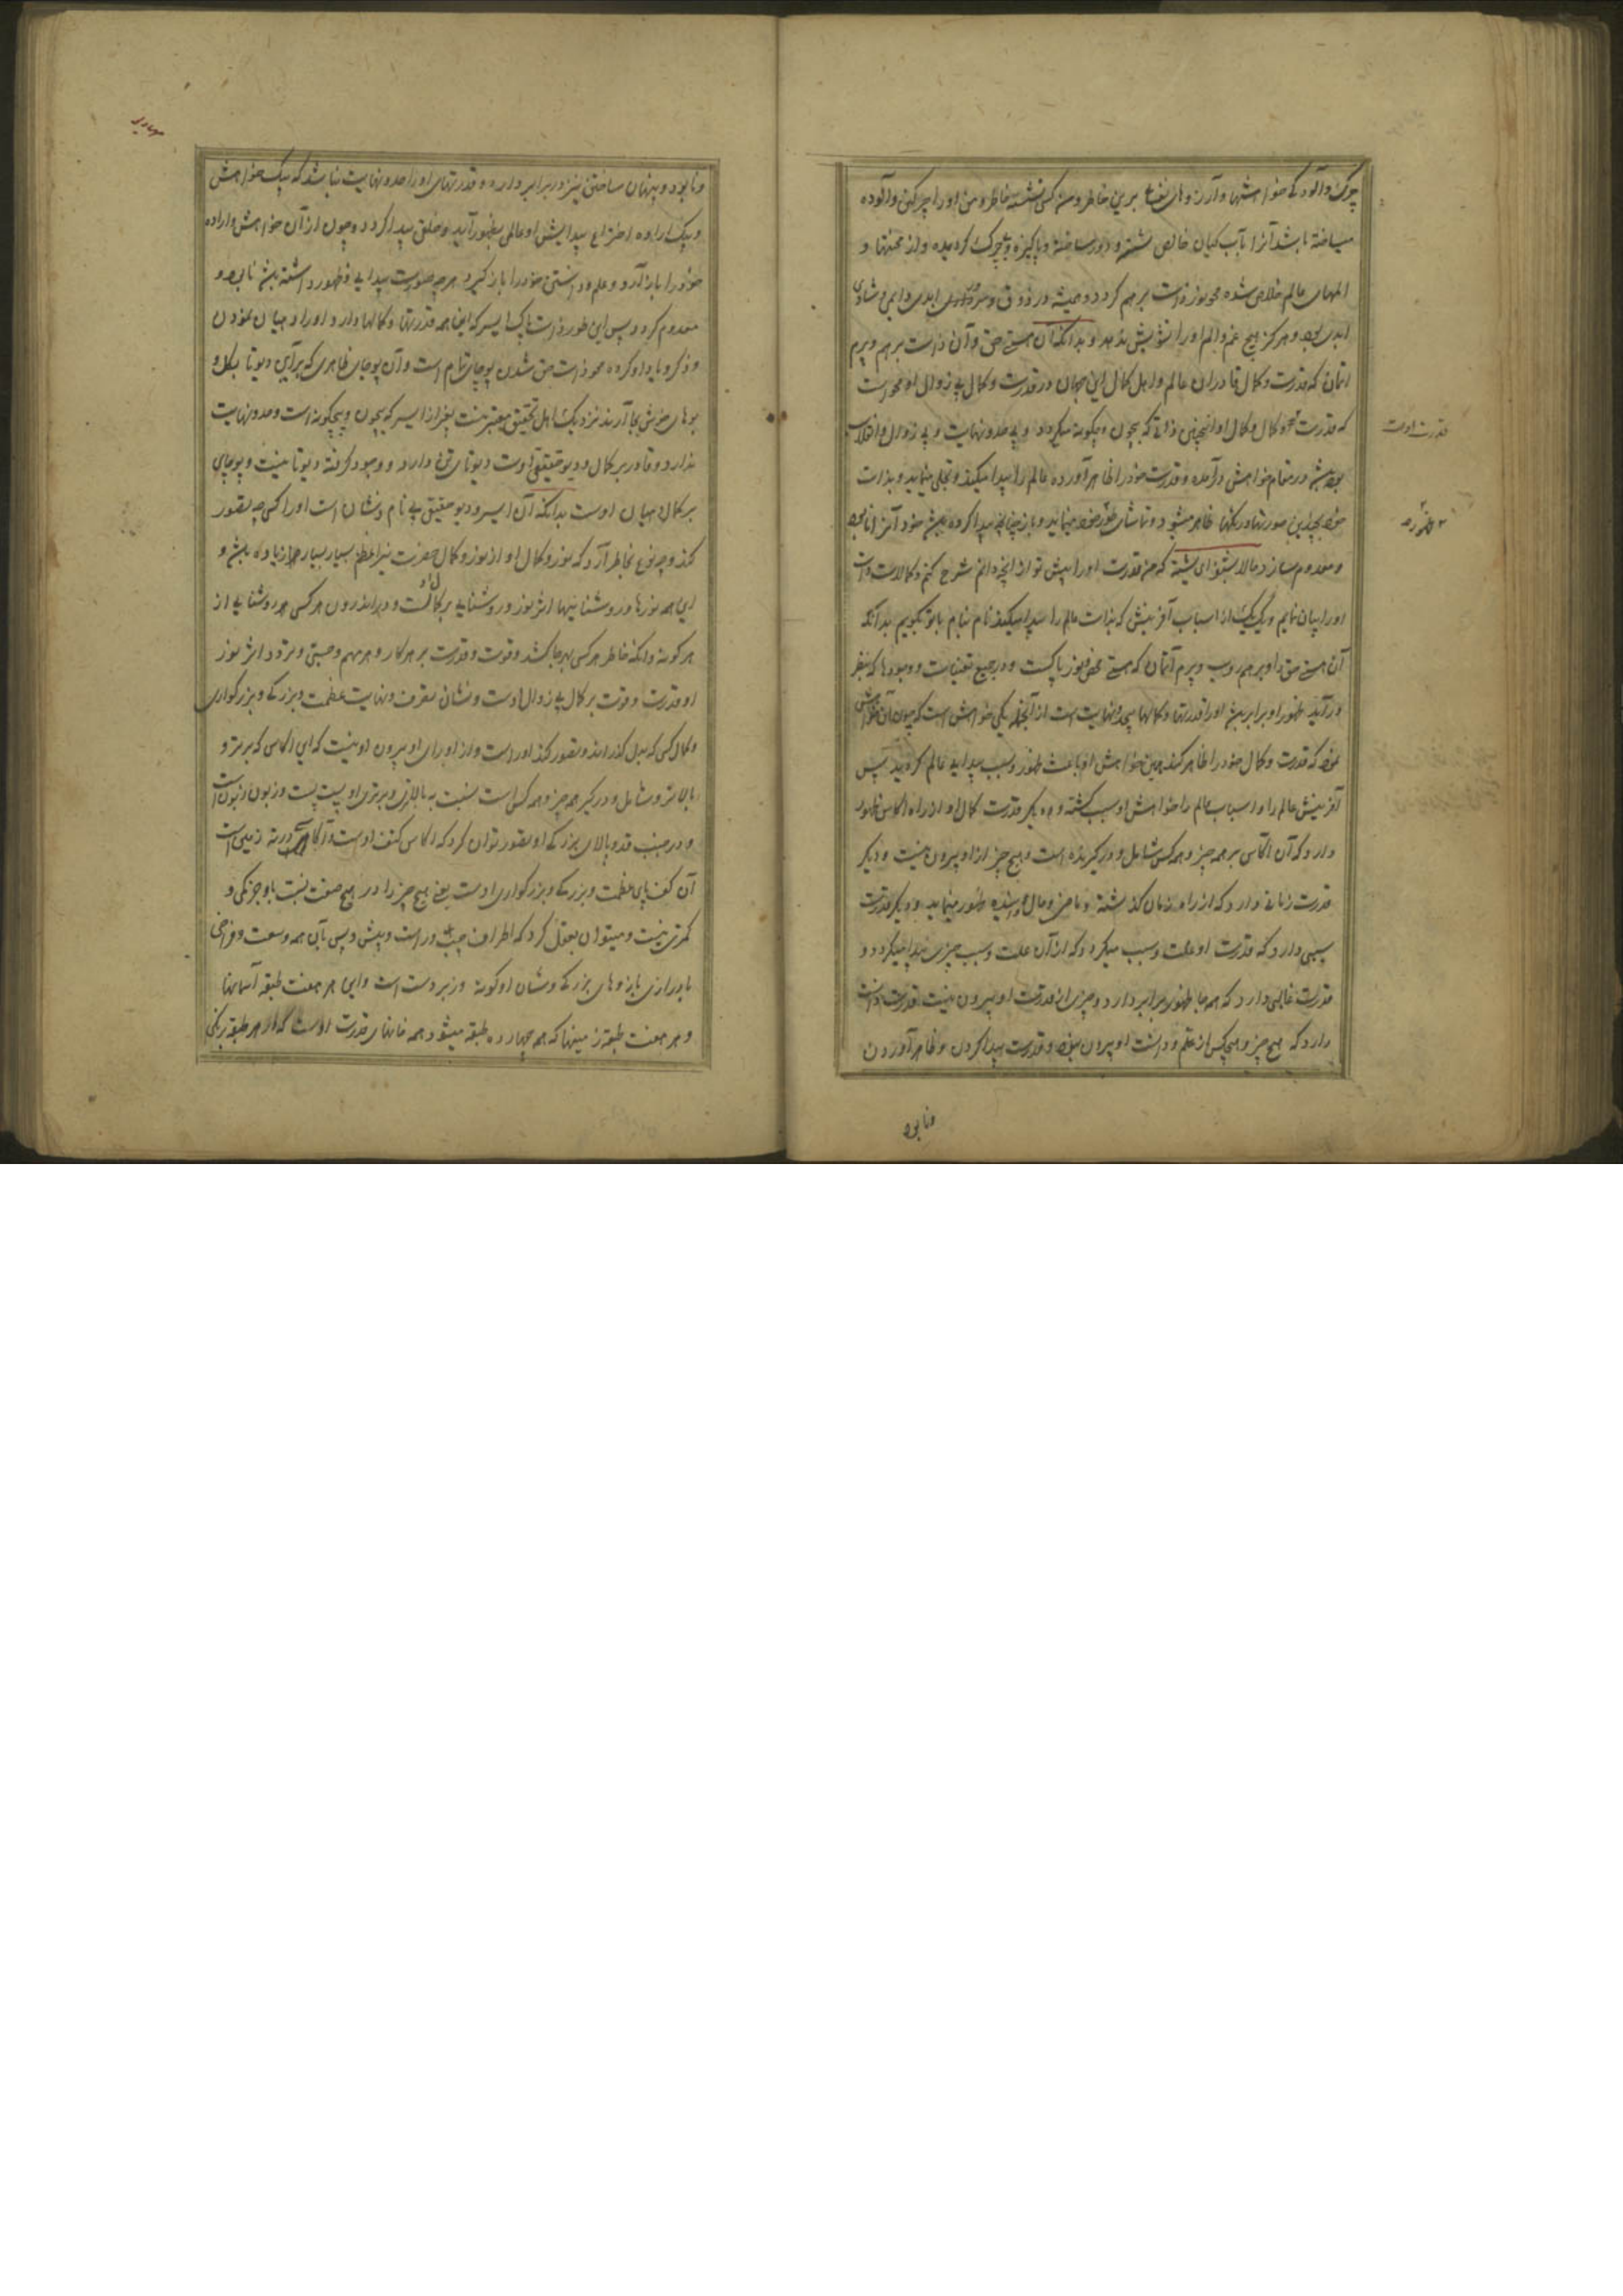 چرک و آلودگی خواهشها و آرزوهای نفس برین خاطر و من کسی نشسته خاطر و من او را چرکین و آلوده
میساخته باشد آنرا بآب گیان خالص شسته و دور ساخته و پاکیزه و بی چرک گردیده و از محنتها و
المهای عالم خلاص شده محو نور ذات برهم گردد و همیشه در ذوق و سرور ابدی دایمی و شادی
ابدی بوده و هرگز هیچ غم و الم او را تشویش ندهد و بدانکه آن هستی حق و آن ذات برهم و پرم
اتمان که قدرت و کمال قادران عالم و اهل کمال این جهان در قدرت و کمال بی زوال او محو است
که قدرت و کمال او آنچنین ذاتی که بیچون و بیچگونه میگردد و بی حد و نهایت و بی زوال و انقلاب
بوده در مقام خواهش درآمده و قدرت خود را ظاهر آورده عالم را پیدا میکند و تجلی مینماید و بذات
خود بچندین صورتها و رنگها ظاهر میشود و تماشای ظهور خود مینماید و باز چنانچه پیدا کرده پیش خود آنرا نابود
و معدوم سازد حالا بشنو ای بشسته که من قدرت او را پیش تو از آنچه دانم شرح کنم و کمالات ذات
او را بیان نمایم و یک یک از اسباب آفرینش که بذات عالم را پیدا میکند نام بنام با تو بگویم بدانکه
آن هستی حق و برهم روپ و پرم آتمان که هستی محض و نور پاکست و در جمیع تعینات و وجودها که بنظر
درآید ظهور او برابر بین او را قدرتها و کمالها بیحد و نهایت است از آنجمله یکی خواهش است که چون آن خواهش
نمود که قدرت و کمال خود را ظاهر کند همین خواهش او باعث ظهور و سبب پیدایی عالم گردید پس
آفرینش عالم را و اسباب عالم را خواهش او سبب گشته و دیگر قدرت کمال او از راه اکاس ظهور
دارد که آن اکاس بر همه چیز و همه کس شامل و درگیرنده است و هیچ چیز از او بیرون نیست و دیگر
قدرت زمانی دارد که از راه زمان گذشته و ماضی و حال و آینده ظهور مینماید و دیگر قدرت
سببی دارد که قدرت او علت و سبب میگردد که از آن علت و سبب چیزی پیدا میگردد و
قدرت غالبی دارد که همه جا ظهور برابر دارد و چیزی از قدرت او بیرون نیست قدرت دانست
دارد که هیچ چیز و هیچکس از علم و دانست او بیرون نبود و قدرت پیدا کردن و ظاهر آوردن
قدرت اوست
و نابود
و نابود و پنهان ساختن نیز در برابر دارد و قدرتهای او را حد و نهایت نباشد که بیک خواهش
و بیک اراده اختراع پیدایش او عالمی بظهور آید و خلق پیدا گردد و چون از آن خواهش و اراده
خود را باز آرد و علم و دانستن خود را باز گیرد هر چه صورت پیدایی و ظهور داشته پیش نابود و
معدوم گردد پس این طور ذات پاک ایسر که اینهمه قدرتها و کمالها دارد او را دهیان نمودن
و ذکر و یاد او کرده محو ذات حق شدن پوجای تمام است و آن پوجای ظاهری که برای دیوتا بگل و
بوهای خوش بجا آرند نزدیک اهل تحقیق معتبر نیست بغیر از ایسر که بیچون و بیچگونه است و حد و نهایت
ندارد و قادر بر کمال و دیو حقیقی اوست دیوتای تن دارد و وجود گرفته دیوتا نیست و پوجای
بر کمال دهیان اوست بدانکه آن ایسر و دیو حقیقی بی نام و نشان است او را کسی چه تصور
کند و چه نوع بخاطر آرد که نور و کمال او از نور و کمال حضرت نیر اعظم بسیار بسیار زیاده بین و
این همه نورها و روشناییها اثر نور و روشنایی بر کمال اوست و در اندرون هر کسی هر روشنایی از
هر گونه و آنکه خاطر هر کس بهر جا کشد و قوت و قدرت بر هر کار و هر مهم و چستی و تردد اثر نور
او و قدرت و قوت بر کمال بی زوال اوست و نشان تصرف و نهایت عظمت و بزرگی و بزرگواری
و کمال کسی که بدل گذراند و تصور کند او راست و از او برای او بیرون او نیست که این اکاس که برتر و
بالاتر و شامل و درگیر همه چیز و همه کس است نسبت به بالاتری و برتری او پست پست و زبون زبون است
و در جنب قد و بالای بزرگی او تصور توان کرد که اکاس کتف اوست و آنکاه در ته زمین است
آن کف پای عظمت و بزرگی و بزرگواری اوست یعنی هیچ چیز را در هیچ صفت نسبت باو جز نکی و
کمتری نیست و میتوان تعقل کرد که اطراف چپ و راست و پیش و پس باین همه وسعت و فراخی
با درازی بازوهای بزرگی و شان او گونه و زبردست است و این هر هفت طبقه آسمانها
و هر هفت طبقه زمینها که همه چهارده طبقه میشود همه خانهای قدرت اوست که از هر طبقه رنگی